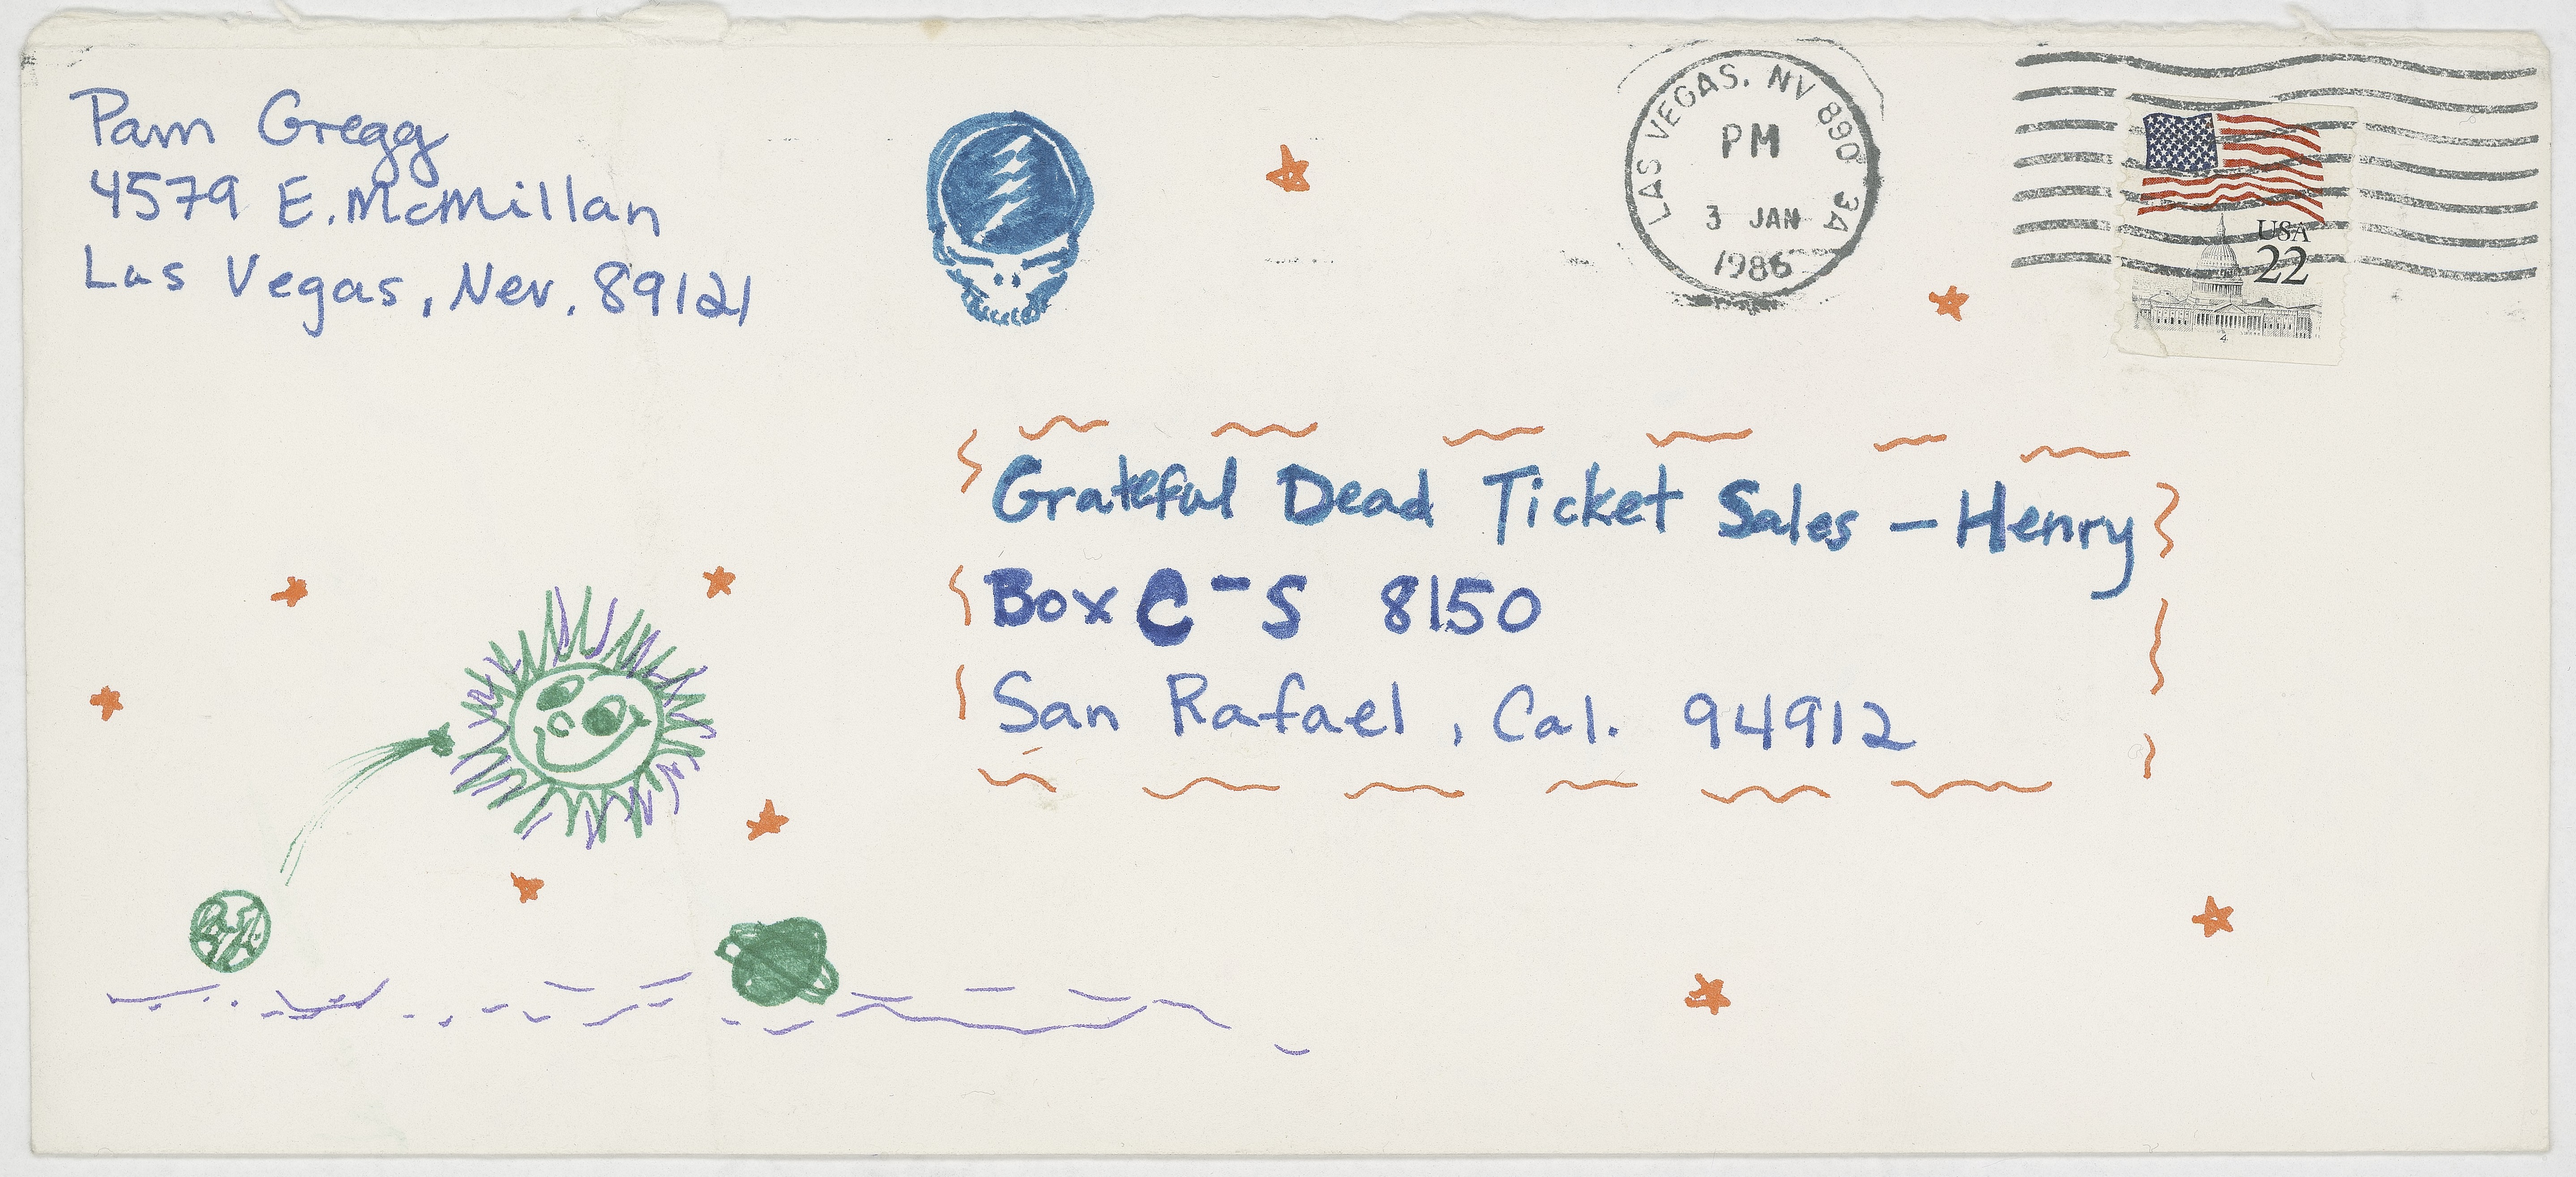 Pam Gregg
4579 E. McMillan
Las Vegas, Nev. 89121
LAS VEGAS, NV 890 3A
PM
3 JAN
1986
USA
22
4
Grateful Dead Ticket Sales - Henry
Box C-S 8150
San Rafael, Cal. 94912